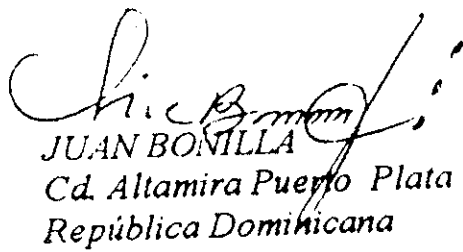 JUAN BONILLA
Cd. Altamira Puerto Plata
República Dominicana